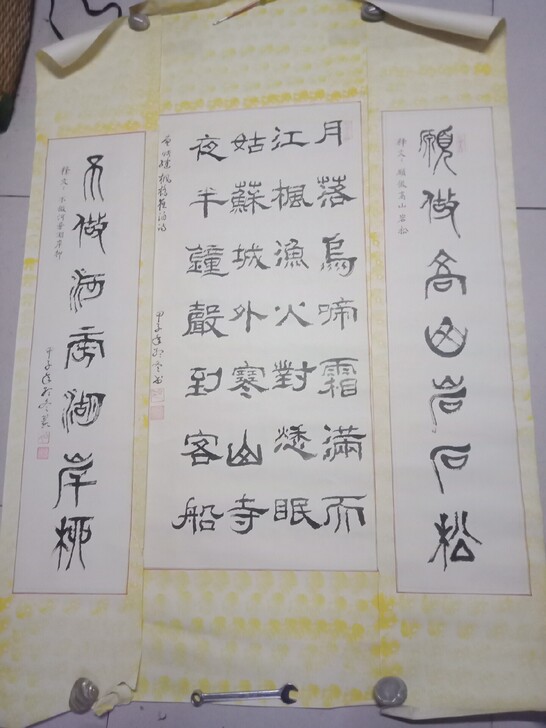 願做高山岩石松
释文：願做高山岩松
月落烏啼霜滿而
江楓漁火對愁眠
姑蘇城外寒山寺
夜半鐘聲到客船
不做湖岸柳
释文：不做